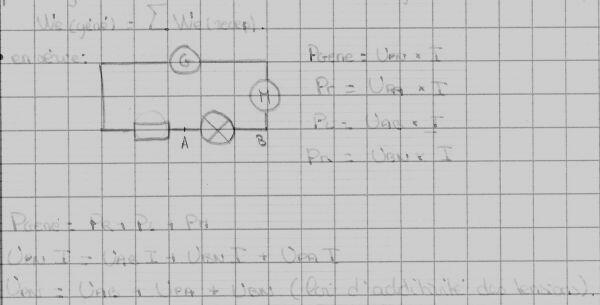 We(géné) = Σ We(recep).
en série:
G
M
A B
Pgene = UPN × I
Pr = UPA × I
PL = UAB × I
PM = UBN × I
Pgene = PR + PL + PM
UPN I = UAB I + UBN I + UPA I
UPN = UAB + UPA + UBN (Loi d'additibilité des tensions).